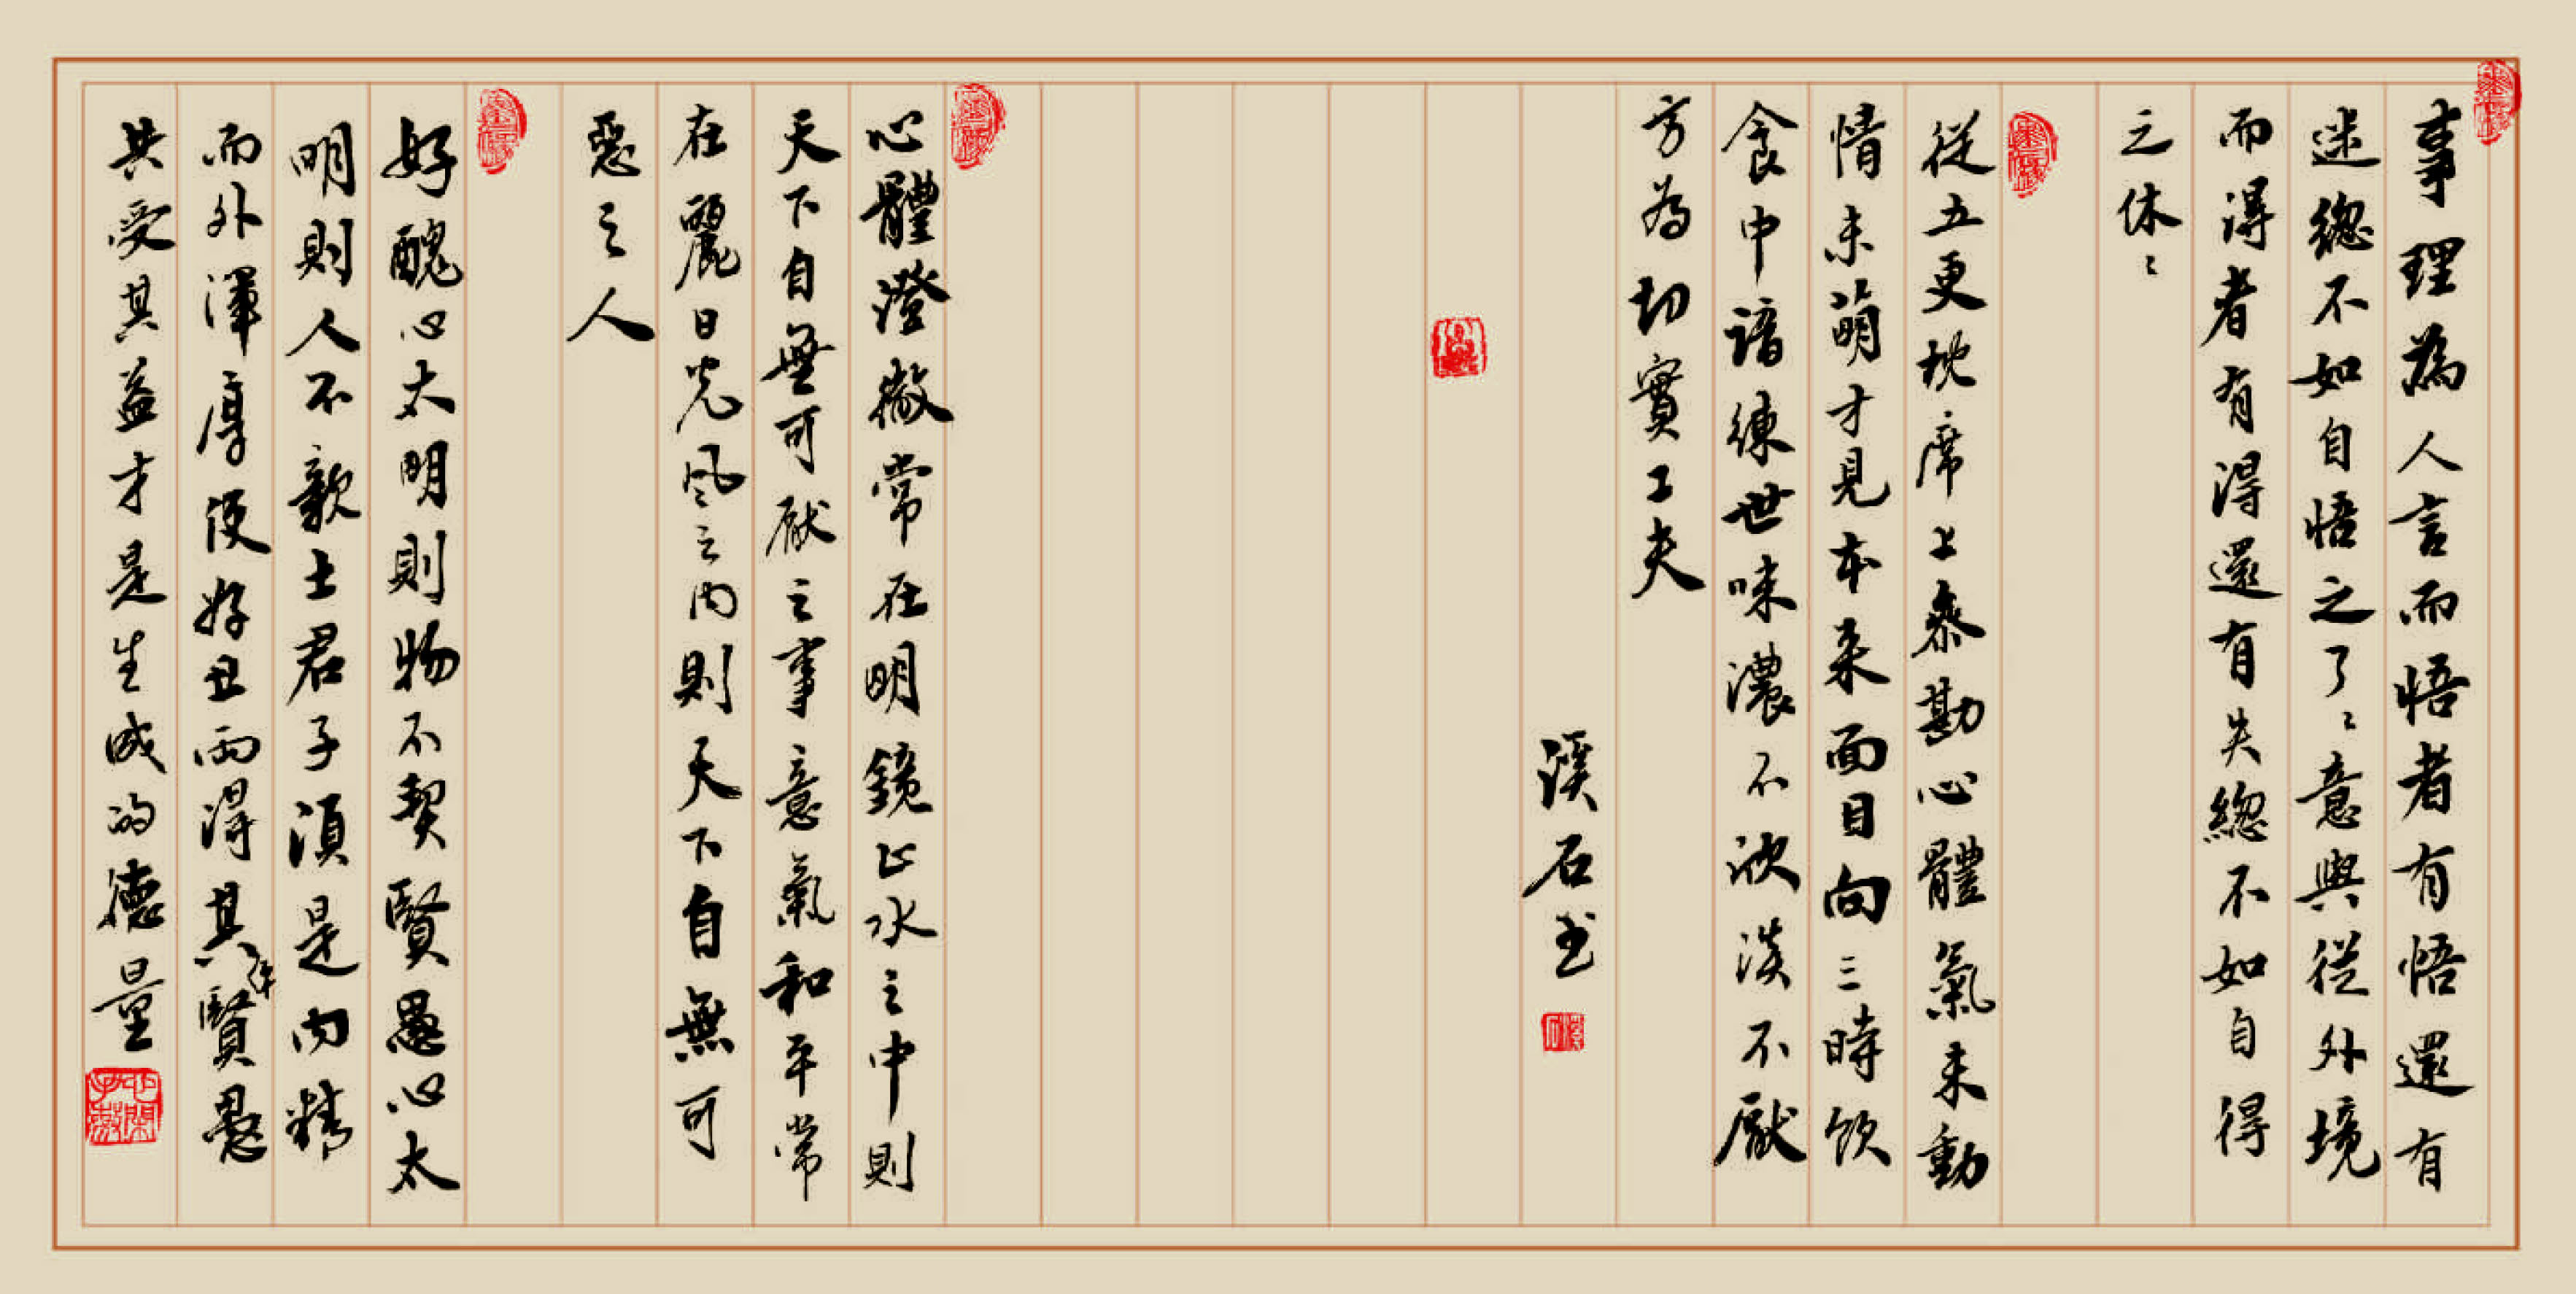 事理為人言而悟者有悟還有
迷總不如自悟之了〻意興從外境
而得者有得還有失總不如自得
之休〻
從五更枕席上參勘心體氣未動
情未萌才見本來面目向三時飲
食中諳練世味濃不欣淡不厭
方為切實工夫
溪石书
心體澄徹常在明鏡止水之中則
天下自無可厭之事意氣和平常
在麗日光風之內則天下自無可
惡之人
好醜心太明則物不契賢愚心太
明則人不親士君子須是內精
而外渾厚使好丑兩得其平賢愚
共受其益才是生成的德量
心閒手敏